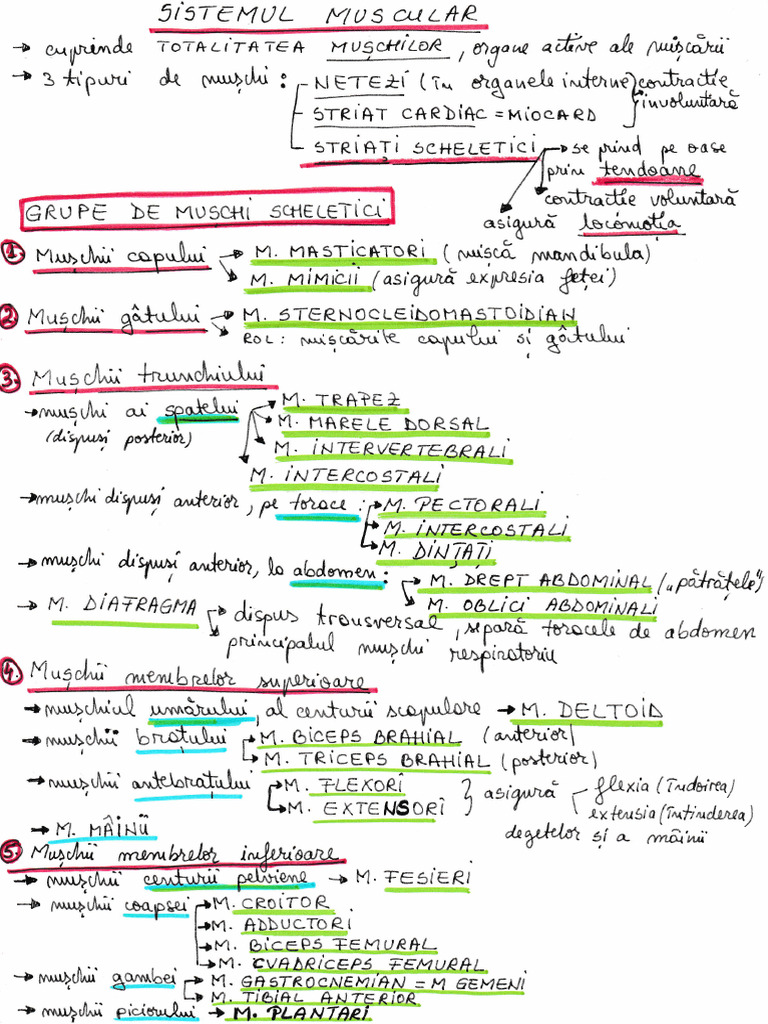 SISTEMUL MUSCULAR
→ cuprinde TOTALITATEA MUȘCHILOR, organe active ale mișcării
→ 3 tipuri de mușchi: NETEZI (în organele interne) contractie
involuntară
STRIAT CARDIAC = MIOCARD
STRIAȚI SCHELETICI → se prind pe oase
prin tendoane
contractie voluntară
asigură locomoția
GRUPE DE MUSCHI SCHELETICI
1. Mușchii capului → M. MASTICATORI (mișcă mandibula)
→ M. MIMICII (asigură expresia feței)
2. Mușchii gâtului → M. STERNOCLEIDOMASTOIDIAN
ROL: mișcările capului și gâtului
3. Mușchii trunchiului
→ mușchi ai spatelui → M. TRAPEZ
(dispuși posterior) → M. MARELE DORSAL
→ M. INTERVERTEBRALI
M. INTERCOSTALI
→ mușchi dispuși anterior, pe torace: → M. PECTORALI
→ M. INTERCOSTALI
→ M. DINȚAȚI
→ mușchi dispuși anterior, la abdomen: → M. DREPT ABDOMINAL („pătrățele")
→ M. OBLICI ABDOMINALI
→ M. DIAFRAGMA → dispus transversal, separă toracele de abdomen
→ principalul mușchi respiratoriu
4. Mușchii membrelor superioare
→ mușchiul umărului, al centurii scapulare → M. DELTOID
→ mușchii brațului → M. BICEPS BRAHIAL (anterior)
→ M. TRICEPS BRAHIAL (posterior)
→ mușchii antebrațului → M. FLEXORI } asigură flexia (îndoirea)
→ M. EXTENSORI extensia (întinderea)
degetelor și a mâinii
→ M. MÂINII
5. Mușchii membrelor inferioare
→ mușchii centurii pelviene → M. FESIERI
→ mușchii coapsei → M. CROITOR
→ M. ADDUCTORI
→ M. BICEPS FEMURAL
→ M. CVADRICEPS FEMURAL
→ mușchii gambei → M. GASTROCNEMIAN = M GEMENI
→ M. TIBIAL ANTERIOR
→ mușchii piciorului → M. PLANTARI